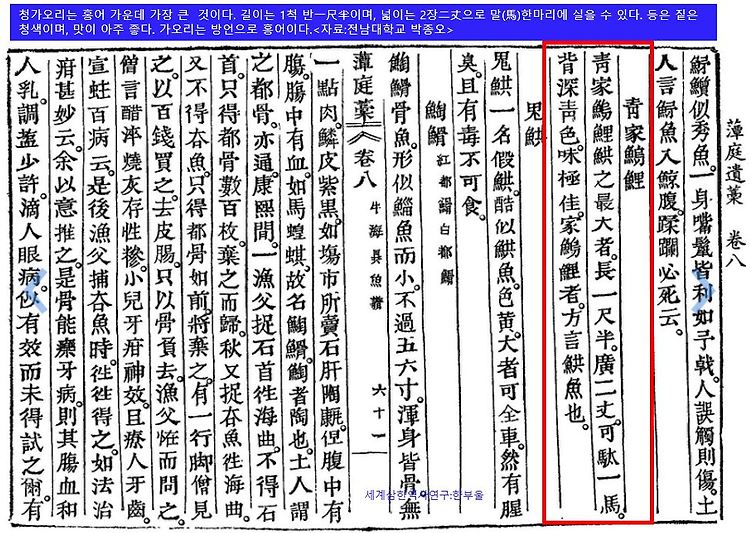 청가오리는 홍어 가운데 가장 큰  것이다. 길이는 1척 반一尺半이며, 넓이는 2장二丈으로 말(馬)한마리에 실을 수 있다. 등은 짙은
청색이며, 맛이 아주 좋다. 가오리는 방언으로 홍어이다.<자료:전남대학교 박종오>
藫庭遺藁 卷八
似秀魚。一身嘴鬣皆利如予戟。人誤觸則傷。土
人言魣魚入鯨腹。蹂躪必死云。
靑家鯉
靑家鯉鉷之最大者。長一尺半。廣二丈。可駄一馬。
背深靑色。味極佳。家鯉者。方言鉷魚也。
鬼鉷
鬼鉷一名假鉷。酷似鉷魚。色黃。大者可全車。然有腥
臭。且有毒不可食。
紅都白都
骨魚。形似鯔魚而小。不過五六寸。渾身皆骨無
藫庭藁 卷八 牛海異魚譜 六十一
一點肉。鱗皮紫黑。如塲市所賣石肝。但腹中有
膓。膓中有血。如馬蝗蜞。故名者陶也。土人謂
之都骨。亦通。康熙間。一漁父捉石首徃海曲。不得石
首。只得都骨數百枚。棄之而歸。秋又捉夻魚徃海曲。
又不得夻魚。只得都骨如前。將棄之。有一行脚僧見
之。以百錢買之。去皮膓。只以骨負去。漁父恠而問之。
僧言醋淬燒灰存性糝。小兒牙疳神效。且療人牙齒。
宣蛀百病云。是後漁父捕夻魚時。徃徃得之。如法治
疳甚妙云。余以意推之。是骨能療牙病。則其膓血和
人乳。調盖少許。滴人眼病。似有效而未得試之爾。有
세계삼한역사연구:한부울